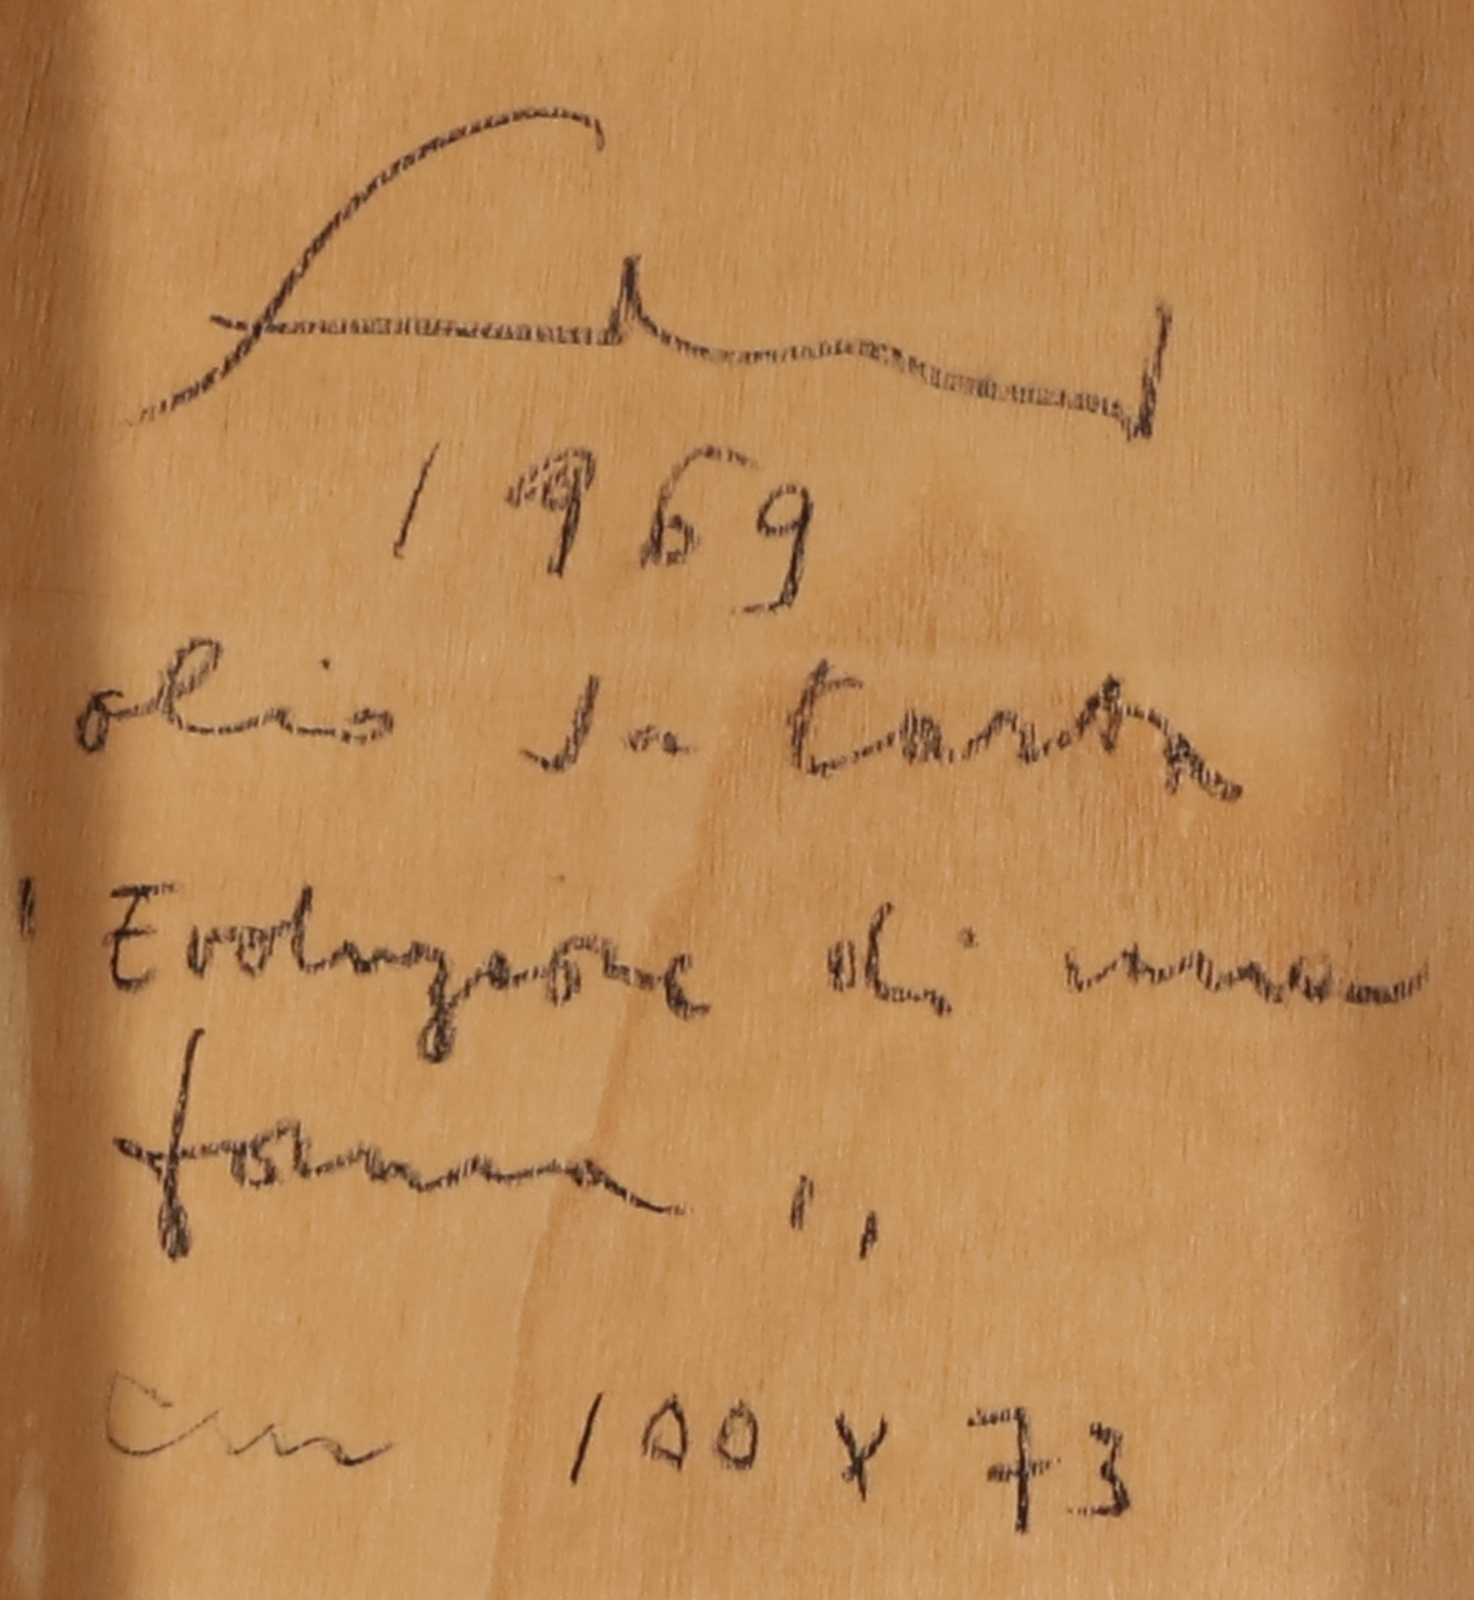 1969
olio su tavola
" Evoluzione di una
forma "
cm 100 x 73